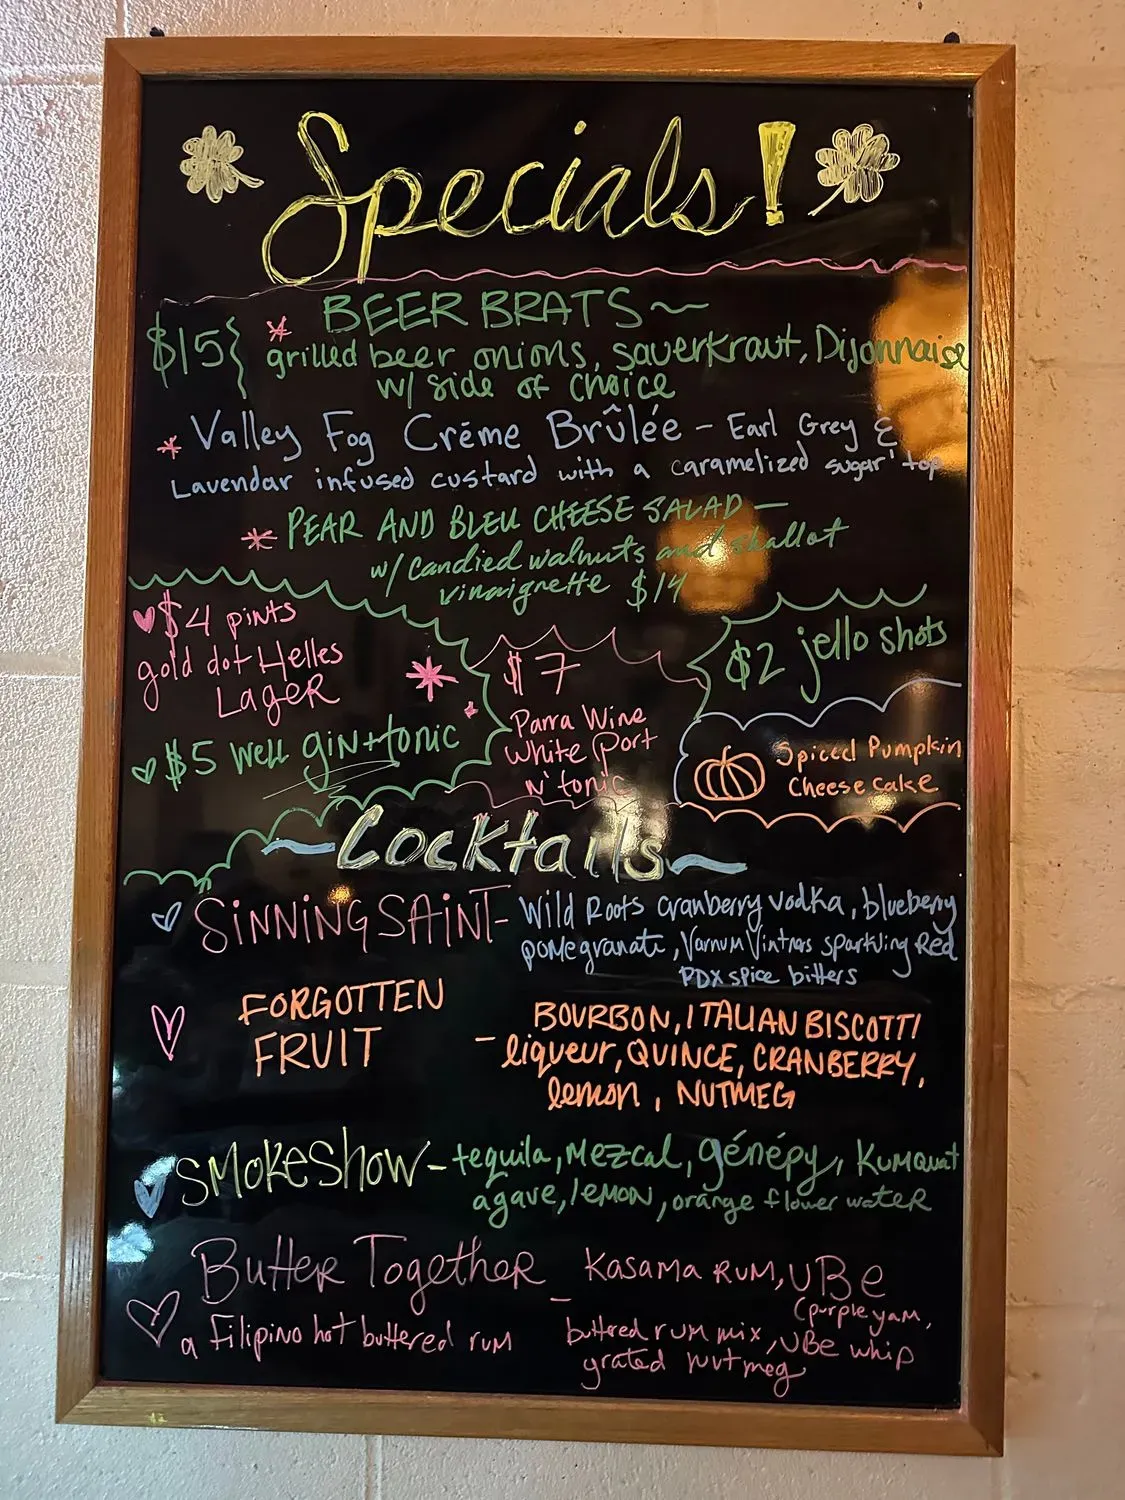 Specials!
BEER BRATS~
$15{ * grilled beer onions, sauerkraut, Dijonnaise
w/ side of choice
* Valley Fog Créme Brûlée - Earl Grey &
Lavendar infused custard with a caramelized sugar top
* PEAR AND BLEU CHEESE SALAD —
w/ candied walnuts and shallot
vinaigrette $14
$4 pints
gold dot Helles
LAGER
$5 well gin+tonic
$7
Parra Wine
White Port
n' tonic
$2 jello shots
Spiced Pumpkin
Cheesecake
~Cocktails~
SINNING SAINT- Wild Roots cranberry vodka, blueberry
pomegranate, Varnum Vintners sparkling Red
PDX spice bitters
FORGOTTEN
FRUIT
- BOURBON, ITALIAN BISCOTTI
liqueur, QUINCE, CRANBERRY,
lemon, NUTMEG
SMOKESHOW- tequila, Mezcal, génépy, Kumquat
agave, lemon, orange flower water
Butter Together - Kasama Rum, UBe
(purple yam,
a Filipino hot buttered rum
buttered rum mix, UBe whip
grated nutmeg